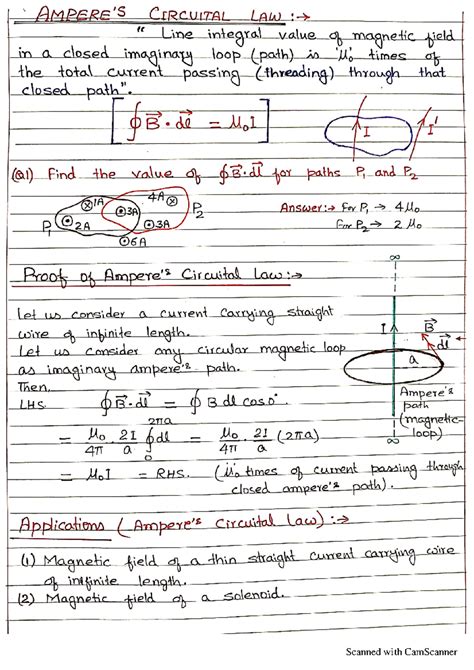 AMPERE'S CIRCUITAL LAW :→
" Line integral value of magnetic field
in a closed imaginary loop (path) is 'μ₀' times of
the total current passing (threading) through that
closed path".
[∮B⃗·dl⃗ = μ₀I]
I I'
(Q1) Find the value of ∮B⃗·dl⃗ for paths P₁ and P₂
P₁ ⊙2A ⊗1A ⊙3A 4A⊗ ⊙3A P₂ ⊙6A
Answer:→ For P₁ → 4μ₀
For P₂ → 2μ₀
Proof of Ampere's Circuital Law:→
Let us consider a current carrying straight
wire of infinite length.
Let us consider any circular magnetic loop
as imaginary ampere's path.
Then,
LHS ∮B⃗·dl⃗ = ∮B dl cos0°
= μ₀/4π 2I/a ∮₀^2πa dl = μ₀/4π · 2I/a (2πa)
= μ₀I = RHS. (μ₀ times of current passing through
closed ampere's path).
∞
I B⃗
dl⃗
a
Ampere's
path
(magnetic
loop)
∞
Applications (Ampere's Circuital Law) :→
(1) Magnetic field of a thin straight current carrying wire
of infinite length.
(2) Magnetic field of a solenoid.
Scanned with CamScanner